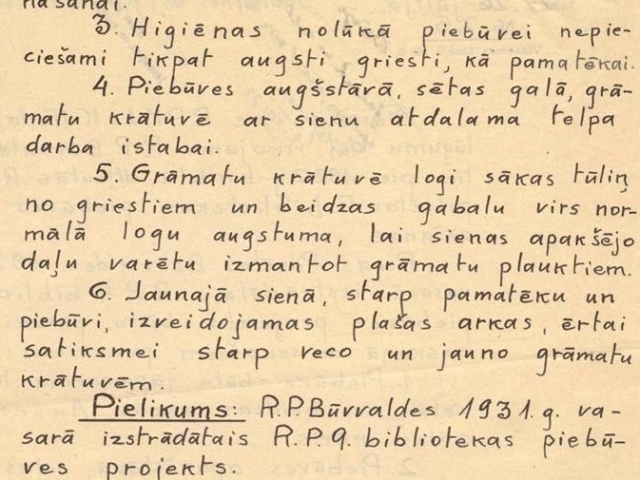 našanai.
3. Higiēnas nolūkā piebūvei nepie-
ciešami tikpat augsti griesti, kā pamatēkai.
4. Piebūves augšstāvā, sētas galā, grā-
matu krātuvē ar sienu atdalama telpa
darba istabai.
5. Grāmatu krātuvē logi sākas tūliņ
no griestiem un beidzas gabalu virs nor-
mālā logu augstuma, lai sienas apakšējo
daļu varētu izmantot grāmatu plauktiem.
6. Jaunajā sienā, starp pamatēku un
piebūvi, izveidojamas plašas arkas, ērtai
satiksmei starp veco un jauno grāmatu
krātuvēm.
Pielikums: R.P.Būvvaldes 1931.g. va-
sarā izstrādātais R.P.9. bibliotekas piebū-
ves projekts.